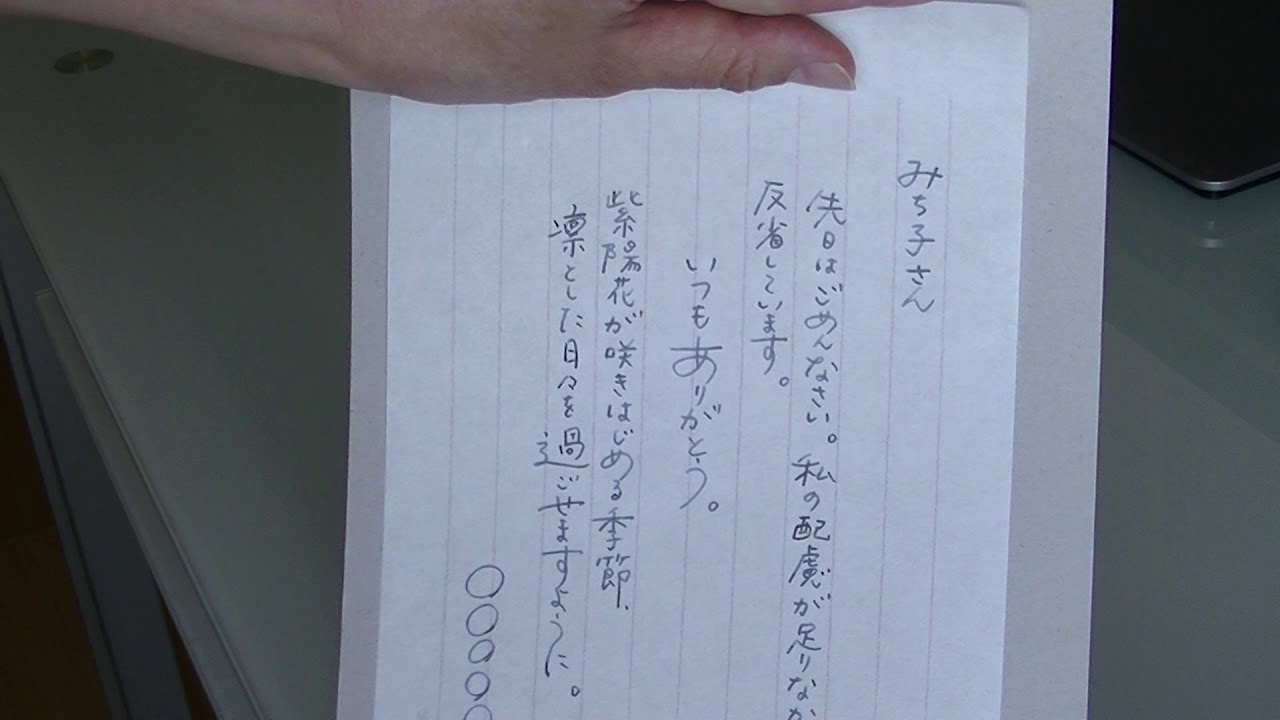 みち子さん
先日はごめんなさい。私の配慮が足りなか
反省しています。
いつもありがとう。
紫陽花が咲きはじめる季節、
凛とした日々を過ごせますように。
○○○○○